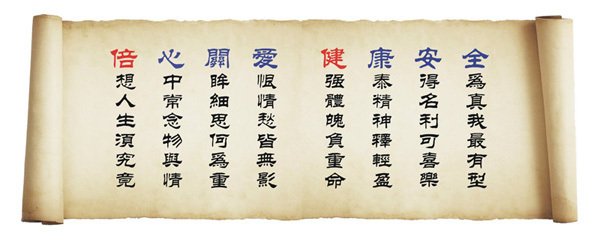 全爲真我最有型
安得名利可喜樂
康泰精神釋輕盈
健强體魄負重命
愛恨情愁皆無影
關眸細思何爲重
心中常念物與情
倍想人生須究竟